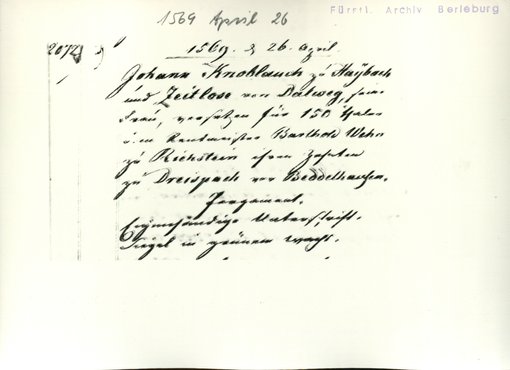 1569 April 26
Fürstl. Archiv Berleburg
2072
1569. d 26. April.
Johann Knoblauch zu Haybach
und Zeitlose von Dalweg, seine
Frau, versetzen für 150 Thaler
dem Rentmeister Barthol. Wehn
zu Richstein ihren Zehnten
zu Dreispach vor Beddelhausen.
Pergament.
Eigenhändige Unterschrift.
Siegel in grünem Wachs.